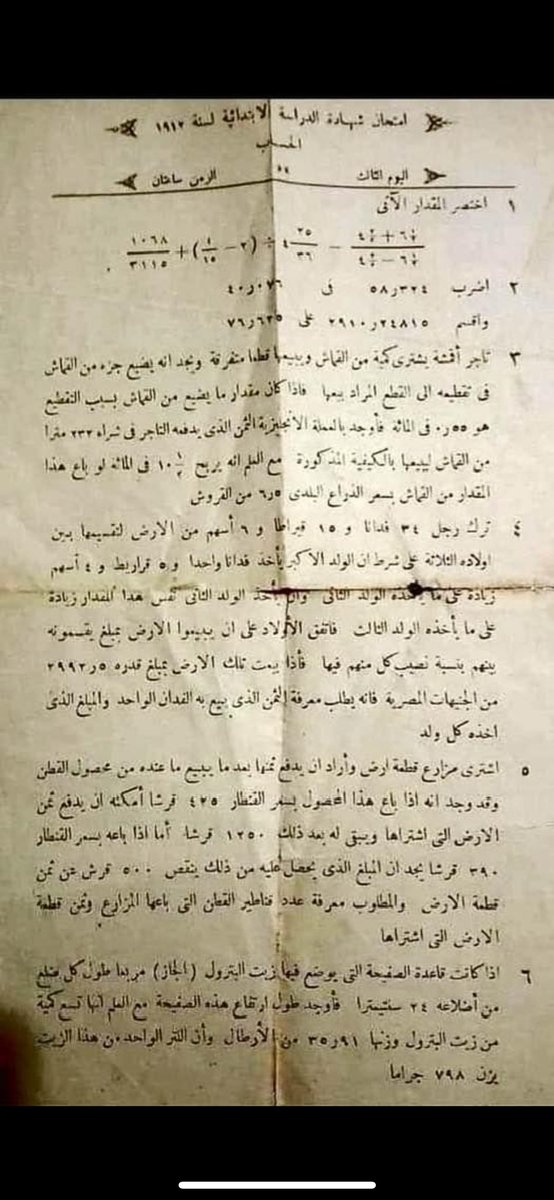 امتحان شهادة الدراسة الابتدائية لسنة ١٩١٢
الحساب
اليوم الثالث الزمن ساعتان
١ اختصر المقدار الآتى
٢٥ / ٣٦ ٤ ÷ (٢ − ١ / ١٥) + ١٠٦٨ / ٣١١٥
٢ اضرب ٣٢٤ر٥٨ فى ٠٧٦ر٤٠
واقسم ٢٤٨١٥ر٢٩١٠ على ٦٢٥ر٧٦
٣ تاجر أقمشة يشترى كمية من القماش ويبيعها قطعا متفرقة ويجد انه يضيع جزء من القماش
فى تقطيعه الى القطع المراد بيعها فاذا كان مقدار ما يضيع من القماش بسبب التقطيع
هو ٥٥ر٠ فى المائة فأوجد بالعملة الانجليزية الثمن الذى يدفعه التاجر فى شراء ٢٣٢ مترا
من القماش ليبيعها بالكيفية المذكورة مع العلم انه يربح ١٠ ١/٢ فى المائة لو باع هذا
المقدار من القماش بسعر الذراع البلدى ٥ر٦ من القروش
٤ ترك رجل ٣٤ فدانا و ١٥ قيراطا و ٦ أسهم من الارض لتقسيمها بين
اولاده الثلاثة على شرط ان الولد الاكبر يأخذ فدانا واحدا و ٥ قراريط و ٤ أسهم
زيادة على ما يأخذه الولد الثانى وان يأخذ الولد الثانى نفس هذا المقدار زيادة
على ما يأخذه الولد الثالث فاتفق الأولاد على ان يبيعوا الارض بمبلغ يقسمونه
بينهم بنسبة نصيب كل منهم فيها فأذا بيعت تلك الارض بمبلغ قدره ٥ر٢٩٩٢
من الجنيهات المصرية فانه يطلب معرفة الثمن الذى بيع به الفدان الواحد والمبلغ الذى
اخذه كل ولد
٥ اشترى مزارع قطعة ارض وأراد ان يدفع ثمنها بعد ما يبيع ما عنده من محصول القطن
وقد وجد انه اذا باع هذا المحصول بسعر القنطار ٤٢٥ قرشا أمكنه ان يدفع ثمن
الارض التى اشتراها ويبقى له بعد ذلك ١٢٥٠ قرشا أما اذا باعه بسعر القنطار
٣٩٠ قرشا يجد ان المبلغ الذى يحصل عليه من ذلك ينقص ٥٠٠ قرش عن ثمن
قطعة الارض والمطلوب معرفة عدد قناطير القطن التى باعها المزارع وثمن قطعة
الارض التى اشتراها
٦ اذا كانت قاعدة الصفيحة التى يوضع فيها زيت البترول (الجاز) مربعا طول كل ضلع
من أضلاعه ٢٤ سنتيمترا فأوجد طول ارتفاع هذه الصفيحة مع العلم انها تسع كمية
من زيت البترول وزنها ٩١ر٣٥ من الأرطال وأن اللتر الواحد من هذا الزيت
يزن ٧٩٨ جراما